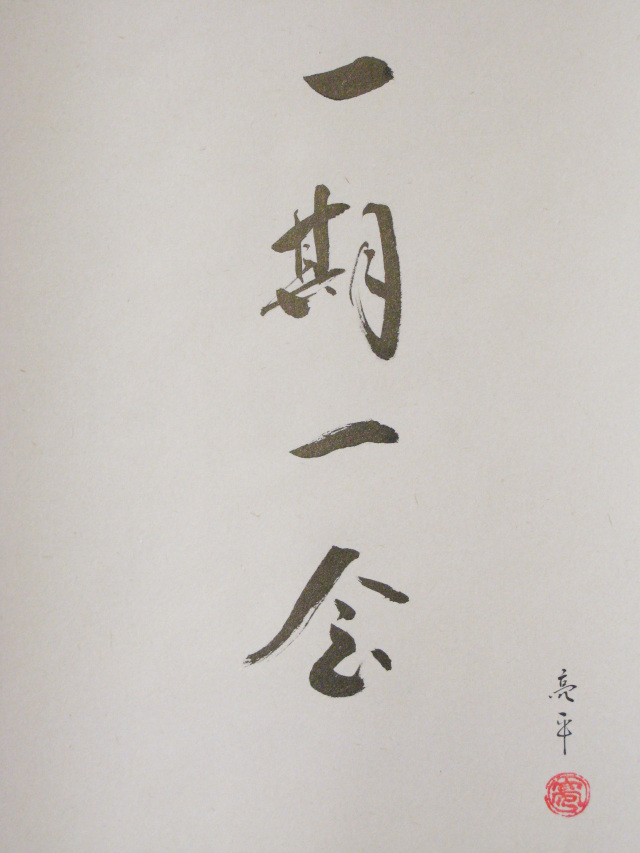 一期一会
亮平